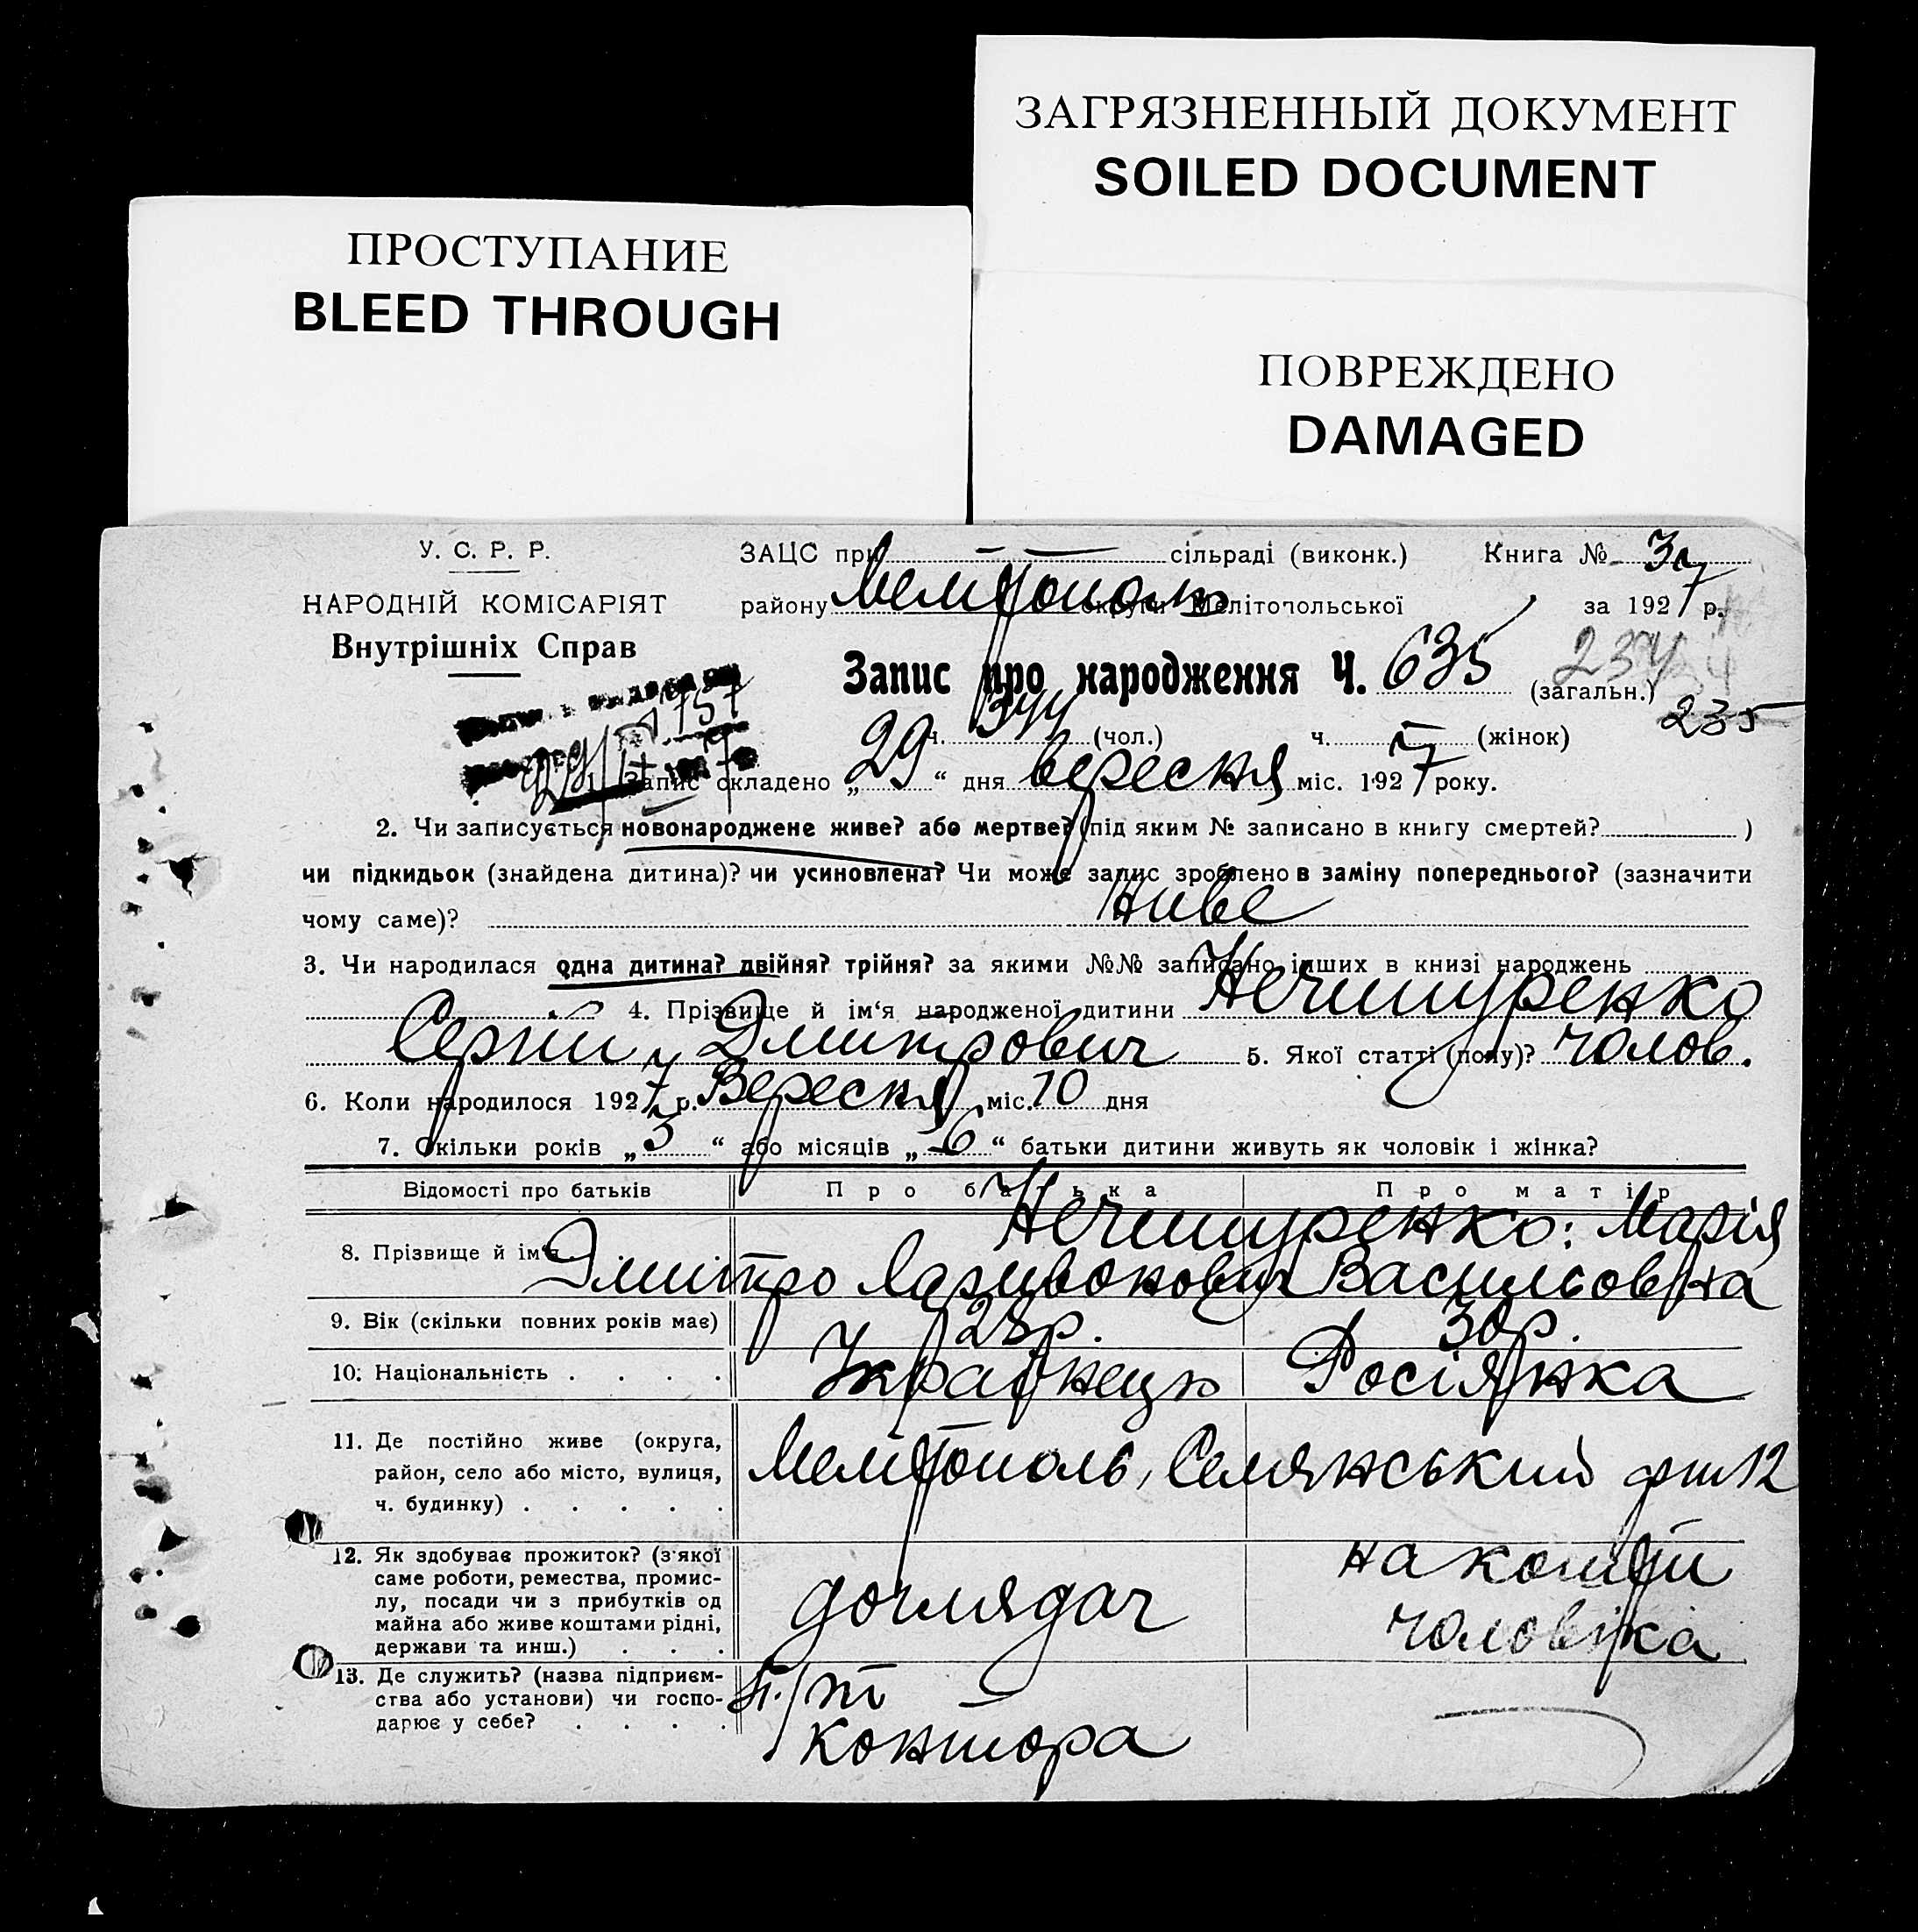 ЗАГРЯЗНЕННЫЙ ДОКУМЕНТ
SOILED DOCUMENT
ПРОСТУПАНИЕ
BLEED THROUGH
ПОВРЕЖДЕНО
DAMAGED
У. С. Р. Р.
НАРОДНІЙ КОМІСАРІЯТ
Внутрішніх Справ
ЗАЦС при — — сільраді (виконк.) Книга №
району Мелітополь округи Мелітопольської за 1927 р.
Запис про народження Ч. 635 (загальн.)
234
235
ч. 344 (чол.) ч. — (жінок)
1. Запис складено „29“ дня вересня міс. 1927 року.
2. Чи записується новонароджене живе? або мертве? (під яким № записано в книгу смертей? )
чи підкидьок (знайдена дитина)? чи усиновлена? Чи може запис зроблено в заміну попереднього? (зазначити
чому саме)? живе
3. Чи народилася одна дитина? двійня? трійня? за якими №№ записано інших в книзі народжень
4. Прізвище й ім‘я народженої дитини Нечипуренко
Сергій Дмитрович 5. Якої статті (полу)? чолов.
6. Коли народилося 1927 р. Вересня міс. 10 дня
7. Скільки років „3“ або місяців „6“ батьки дитини живуть як чоловік і жінка?
Відомості про батьків Про батька Про матір
8. Прізвище й ім‘я Нечипуренко: Марія
Дмитро Ларивонович Васильовна
9. Вік (скільки повних років має) 28р. 30р.
10. Національність Українець Росіянка
11. Де постійно живе (округа,
район, село або місто, вулиця,
ч. будинку)
Мелітополь, 12
12. Як здобуває прожиток? (з‘якої
саме роботи, ремества, промис-
лу, посади чи з прибутків од
майна або живе коштами рідні,
держави та инш.)
доглядач
на кошти
чоловіка
13. Де служить? (назва підприєм-
ства або установи) чи госпо-
дарює у себе?
П./т
контора